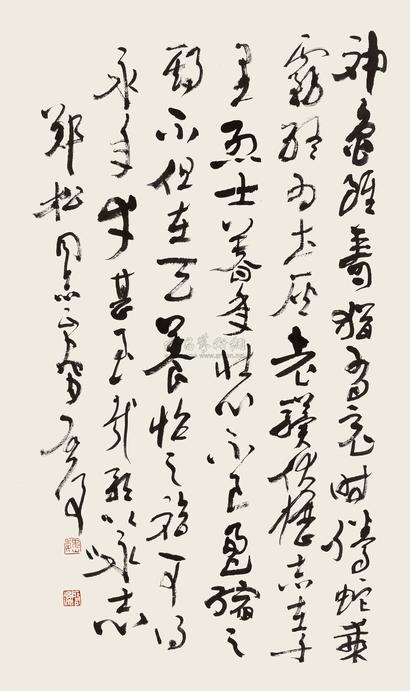 神龜雖壽猶有竟时騰蛇乘
霧終为土灰老驥伏櫪志在千
里烈士暮年壮心不已盈縮之
期不但在天養怡之福可得
永年幸甚至哉歌以咏志
鄭松同志